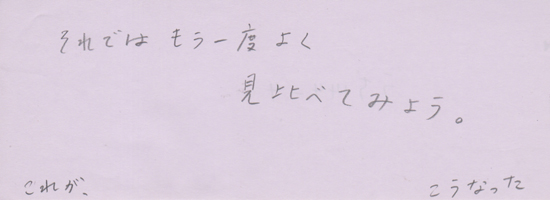 それではもう一度よく
見比べてみよう。
これが、
こうなった